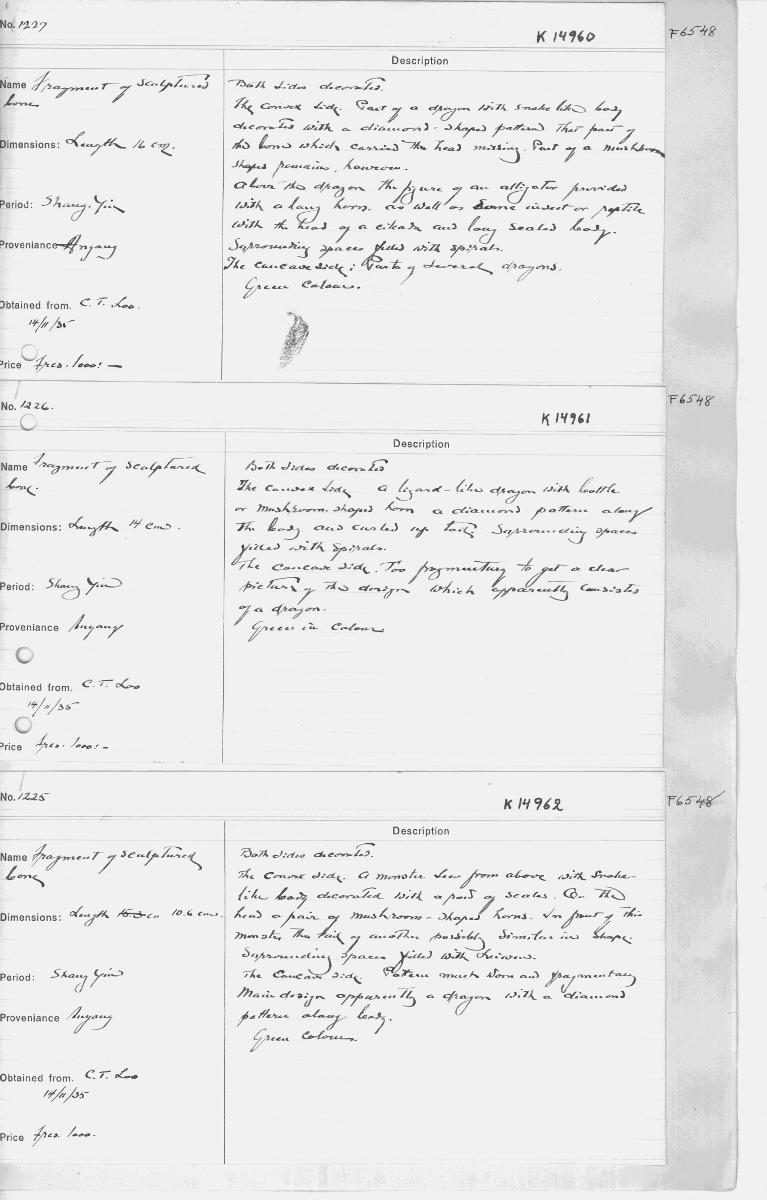 No. 1227
K 14960
F6548
Description
Name Fragment of sculptured
bone
Dimensions: Length 16 cm.
Period: Shang-Yin
Proveniance Anyang
Obtained from. C. T. Loo.
14/11/35
Price Frcs. 1000:-
Both sides decorated.
The convex side. Part of a dragon with snake like body
decorated with a diamond-shaped pattern that part of
the bone which carried the head missing. Part of a mushroom
shape remains, however.
Above the dragon the figure of an alligator provided
with a long horn. as well as some insect or reptile
with the head of a cikada and long scaled body.
Surrounding spaces filled with spirals.
The concave side; Parts of several dragons.
Green Colour.
No. 1226.
K 14961
F6548
Description
Name Fragment of sculptured
bone.
Dimensions: Length 14 cm.
Period: Shang Yin
Proveniance Anyang
Obtained from. C. T. Loo
14/11/35
Price frcs. 1000:-
Both sides decorated
The convex side a lizard-like dragon with bottle
or mushroom-shaped horn a diamond pattern along
the body and curled up tail; Surrounding spaces
filled with spirals.
The concave side. Too fragmentary to get a clear
picture of the design which apparently consists
of a dragon.
Green in Colour
No. 1225
K 14962
F6548
Description
Name Fragment of sculptured
bone
Dimensions: Length cm 10.6 cm.
Period: Shang Yin
Proveniance Anyang
Obtained from. C. T. Loo
14/11/35
Price frcs. 1000.
Both sides decorated.
The convex side. A monster seen from above with snake-
like body decorated with a of scales. On the
head a pair of mushroom-shaped horns. In front of this
monster the tail of another possibly similar in shape.
Surrounding spaces filled with Leiwen.
The Concave side. Pattern much worn and fragmentary
Main design apparently a dragon with a diamond
pattern along body.
Green Colour.